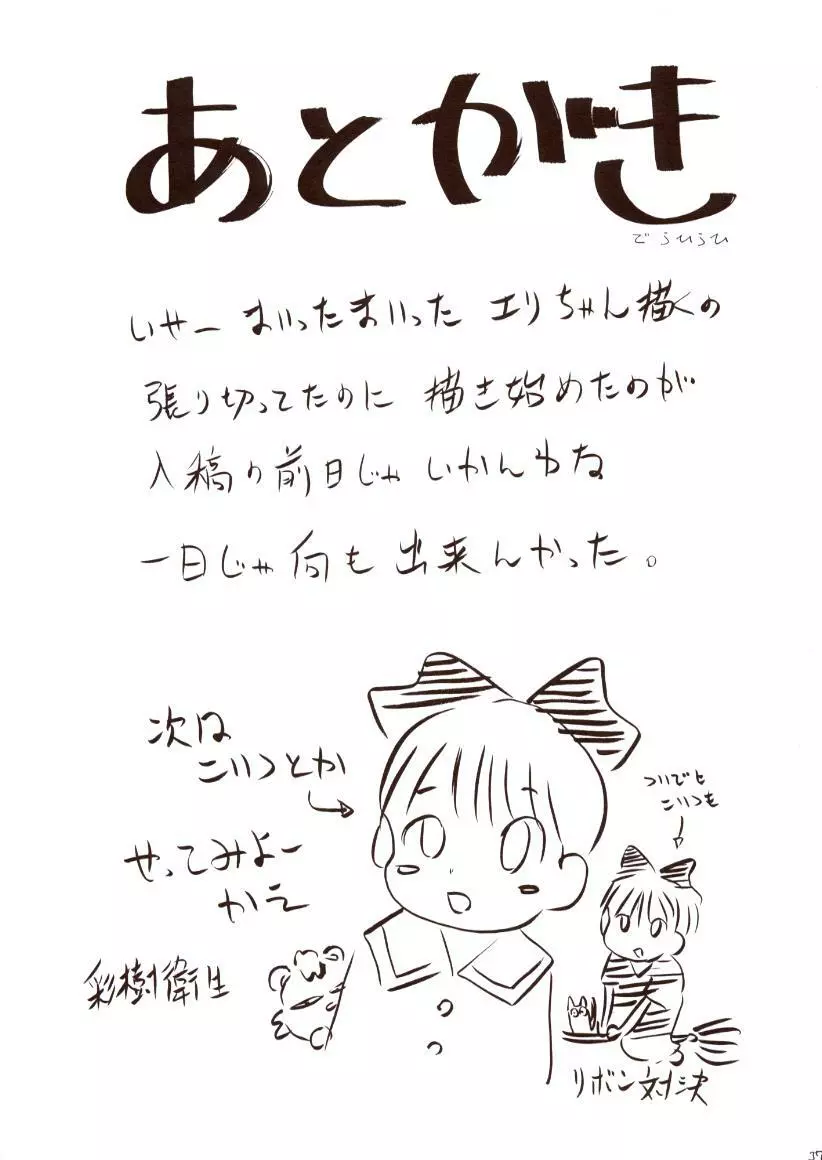 あとがき
で らひらひ
いやー まいったまいった エリちゃん描くの
張り切ってたのに 描き始めたのが
入稿の前日じゃ いかんわな
一日じゃ何も出来んかった。
次は
こいつとか
やってみよー
かえ
ついでに
こいつも
彩樹衛生
リボン対決
37